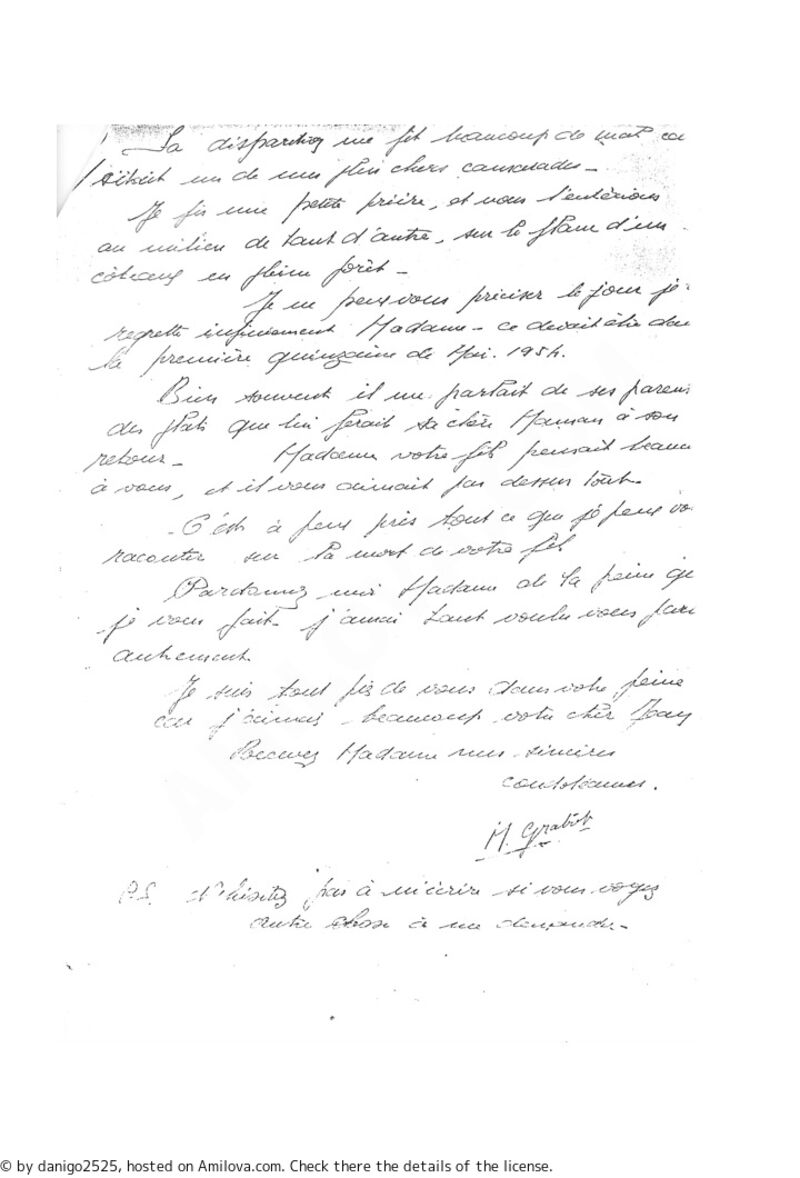 Sa disparition me fit beaucoup de mal ca
s'était un de mes plus chers camarades -
Je fis une petite prière, et nous l'enterrions
au milieu de tant d'autre, sur le flanc d'un
côteaux en pleine forêt -
Je ne peux vous préciser le jour je
regrette infiniment Madame - ce devait être dan
la première quinzaine de Mai. 1954.
Bien souvent il me parlait de ses paren
des plats que lui ferait sa chère Maman à son
retour - Madame votre fils pensait beauc
à vous, et il vous aimait par dessus tout -
- C'est à peu près tout ce que je peux vo
raconter sur la mort de votre fils
Pardonnez moi Madame de la peine que
je vous fait - j'aurai tant voulu vous
autrement
Je suis tout près de vous dans votre peine
car j'aimais beaucoup votre cher Jean
Recevez Madame mes sincères
condoléances.
M. Grabot
P.S. N'hésitez pas à m'écrire si vous voyez
autre chose à me demander -
AMILOVA
© by danigo2525, hosted on Amilova.com. Check there the details of the license.